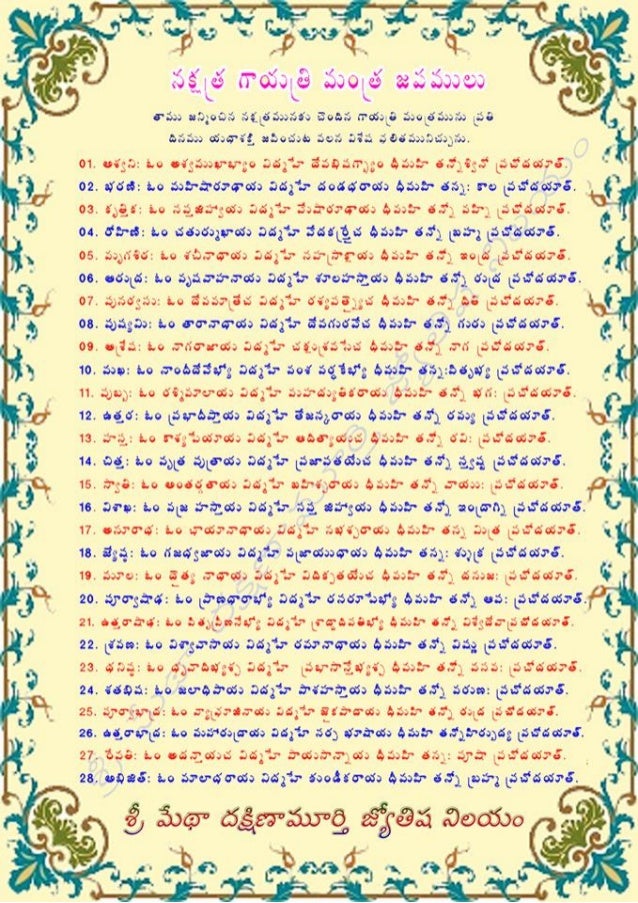 నక్షత్ర గాయత్రి మంత్ర జపములు
తాము జన్మించిన నక్షత్రమునకు చెందిన గాయత్రి మంత్రమును ప్రతి
దినము యథాశక్తి జపించుట వలన విశేష ఫలితమునిచ్చును.
01. అశ్వని: ఓం అశ్వముఖాభ్యాం విద్మహే దేవభిషగ్భ్యాం ధీమహి తన్నోశ్వినో ప్రచోదయాత్.
02. భరణి: ఓం మహిషారూఢాయ విద్మహే దండధరాయ ధీమహి తన్న: కాల ప్రచోదయాత్.
03. కృత్తిక: ఓం సప్తజిహ్వాయ విద్మహే మేషారూఢాయ ధీమహి తన్నో వహ్ని ప్రచోదయాత్.
04. రోహిణి: ఓం చతుర్ముఖాయ విద్మహే ధీమహి తన్నో బ్రహ్మ ప్రచోదయాత్.
05. మృగశిర: ఓం శచీనాథాయ విద్మహే ధీమహి తన్నో ఇంద్ర ప్రచోదయాత్.
06. ఆరుద్ర: ఓం వృషవాహనాయ విద్మహే శూలహస్తాయ ధీమహి తన్నో రుద్ర ప్రచోదయాత్.
07. పునర్వసు: ఓం దేవమాత్రేచ విద్మహే ధీమహి తన్నో ప్రచోదయాత్.
08. పుష్యమి: ఓం తారానాథాయ విద్మహే దేవగురవేచ ధీమహి తన్నో గురు ప్రచోదయాత్.
09. ఆశ్రేష: ఓం నాగరాజాయ విద్మహే ధీమహి తన్నో నాగ ప్రచోదయాత్.
10. మఖ: ఓం విద్మహే వంశ ధీమహి తన్న:పితృభ్య ప్రచోదయాత్.
11. పుబ్బ: ఓం రశ్మిమాలాయ విద్మహే మహద్యుతికరాయ ధీమహి తన్నో భగ: ప్రచోదయాత్.
12. ఉత్తర: ఓం ప్రభాదీప్తాయ విద్మహే తేజస్కరాయ ధీమహి తన్నో ప్రచోదయాత్.
13. హస్త: ఓం కాశ్యపేయాయ విద్మహే ఆదిత్యాయచ ధీమహి తన్నో రవి: ప్రచోదయాత్.
14. చిత్త: ఓం వృత్ర పుత్రాయ విద్మహే ప్రజాపతయేచ ధీమహి తన్నో ప్రచోదయాత్.
15. స్వాతి: ఓం అంతర్గతాయ విద్మహే బహిశ్చరాయ ధీమహి తన్నో వాయు: ప్రచోదయాత్.
16. విశాఖ: ఓం వజ్ర హస్తాయ విద్మహే సప్త జిహ్వాయ ధీమహి తన్నో ఇంద్రాగ్ని ప్రచోదయాత్.
17. అనూరాధ: ఓం ఛాయానాథాయ విద్మహే నభశ్చరాయ ధీమహి తన్న మిత్ర ప్రచోదయాత్.
18. జ్యేష్ఠ: ఓం గజధ్వజాయ విద్మహే వజ్రాయుధాయ ధీమహి తన్న: ప్రచోదయాత్.
19. మూల: ఓం దైత్య నాథాయ విద్మహే ధీమహి తన్నో దనుజ: ప్రచోదయాత్.
20. పూర్వాషాఢ: ఓం ప్రాణధారాభ్యో విద్మహే రసరూపేభ్యో ధీమహి తన్నో ఆప: ప్రచోదయాత్.
21. ఉత్తరాషాఢ: ఓం విద్మహే ధీమహి తన్నో విశ్వేదేవా ప్రచోదయాత్.
22. శ్రవణ: ఓం విశ్వావాసాయ విద్మహే రమానాథాయ ధీమహి తన్నో విష్ణు ప్రచోదయాత్.
23. ధనిష్ఠ: ఓం విద్మహే ధీమహి తన్నో వసవ: ప్రచోదయాత్.
24. శతభిష: ఓం జలాధిపాయ విద్మహే పాశహస్తాయ ధీమహి తన్నో వరుణ: ప్రచోదయాత్.
25. పూర్వాభాద్ర: ఓం విద్మహే ధీమహి తన్నో రుద్ర ప్రచోదయాత్.
26. ఉత్తరాభాద్ర: ఓం మహారుద్రాయ విద్మహే సర్ప భూషాయ ధీమహి ప్రచోదయాత్.
27. రేవతి: ఓం విద్మహే ధీమహి తన్న: పూషా ప్రచోదయాత్.
28. అభిజిత్: ఓం మాలాధరాయ విద్మహే కుండీకరాయ ధీమహి తన్నో బ్రహ్మ ప్రచోదయాత్.
శ్రీ మేధా దక్షిణామూర్తి జ్యోతిష నిలయం